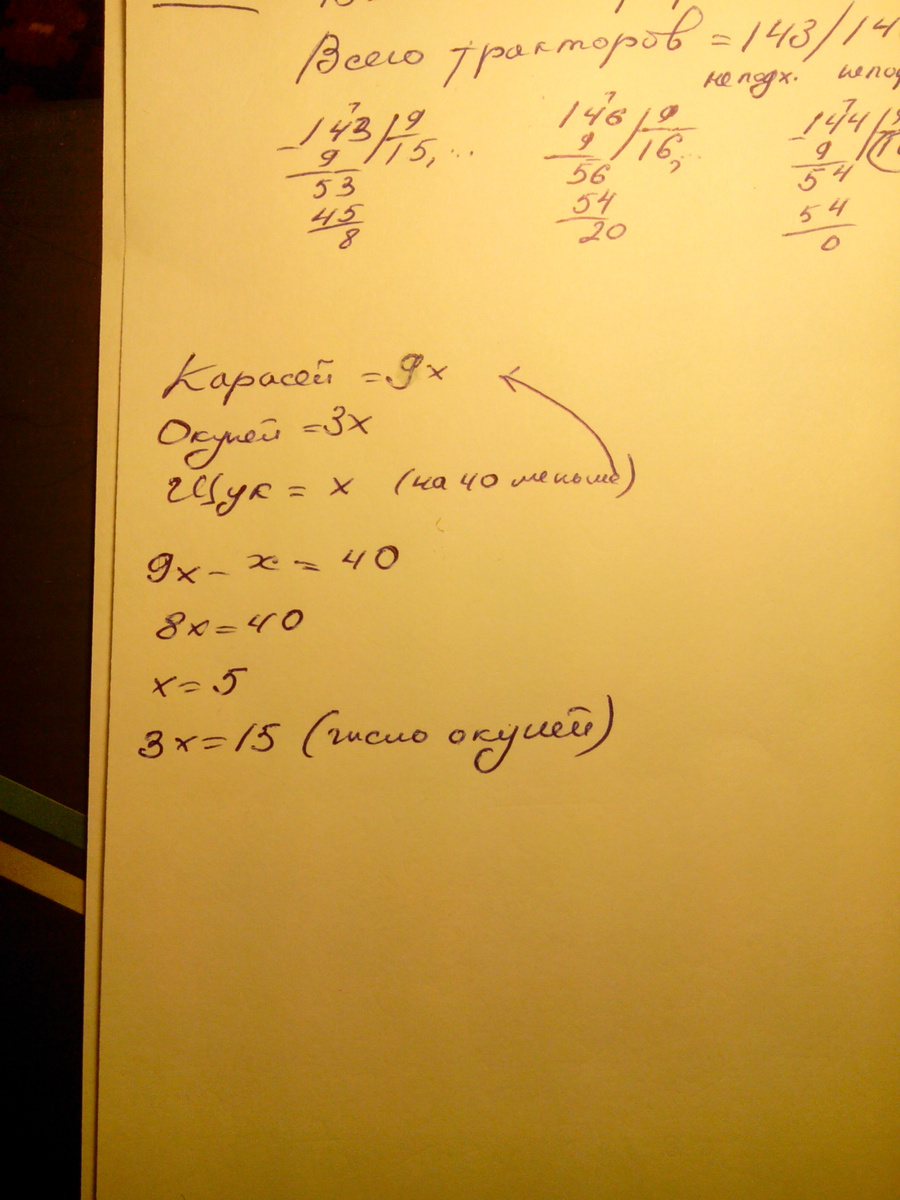 Всего тракторов = 143/14
не подх.
143 | 9
146 | 9
144
9
15, ...
9
16, ...
9
53
56
54
45
54
54
8
20
0
Карасей = 9x
Окуней = 3x
Щук = x (на 40 меньше)
9x - x = 40
8x = 40
x = 5
3x = 15 (число окуней)